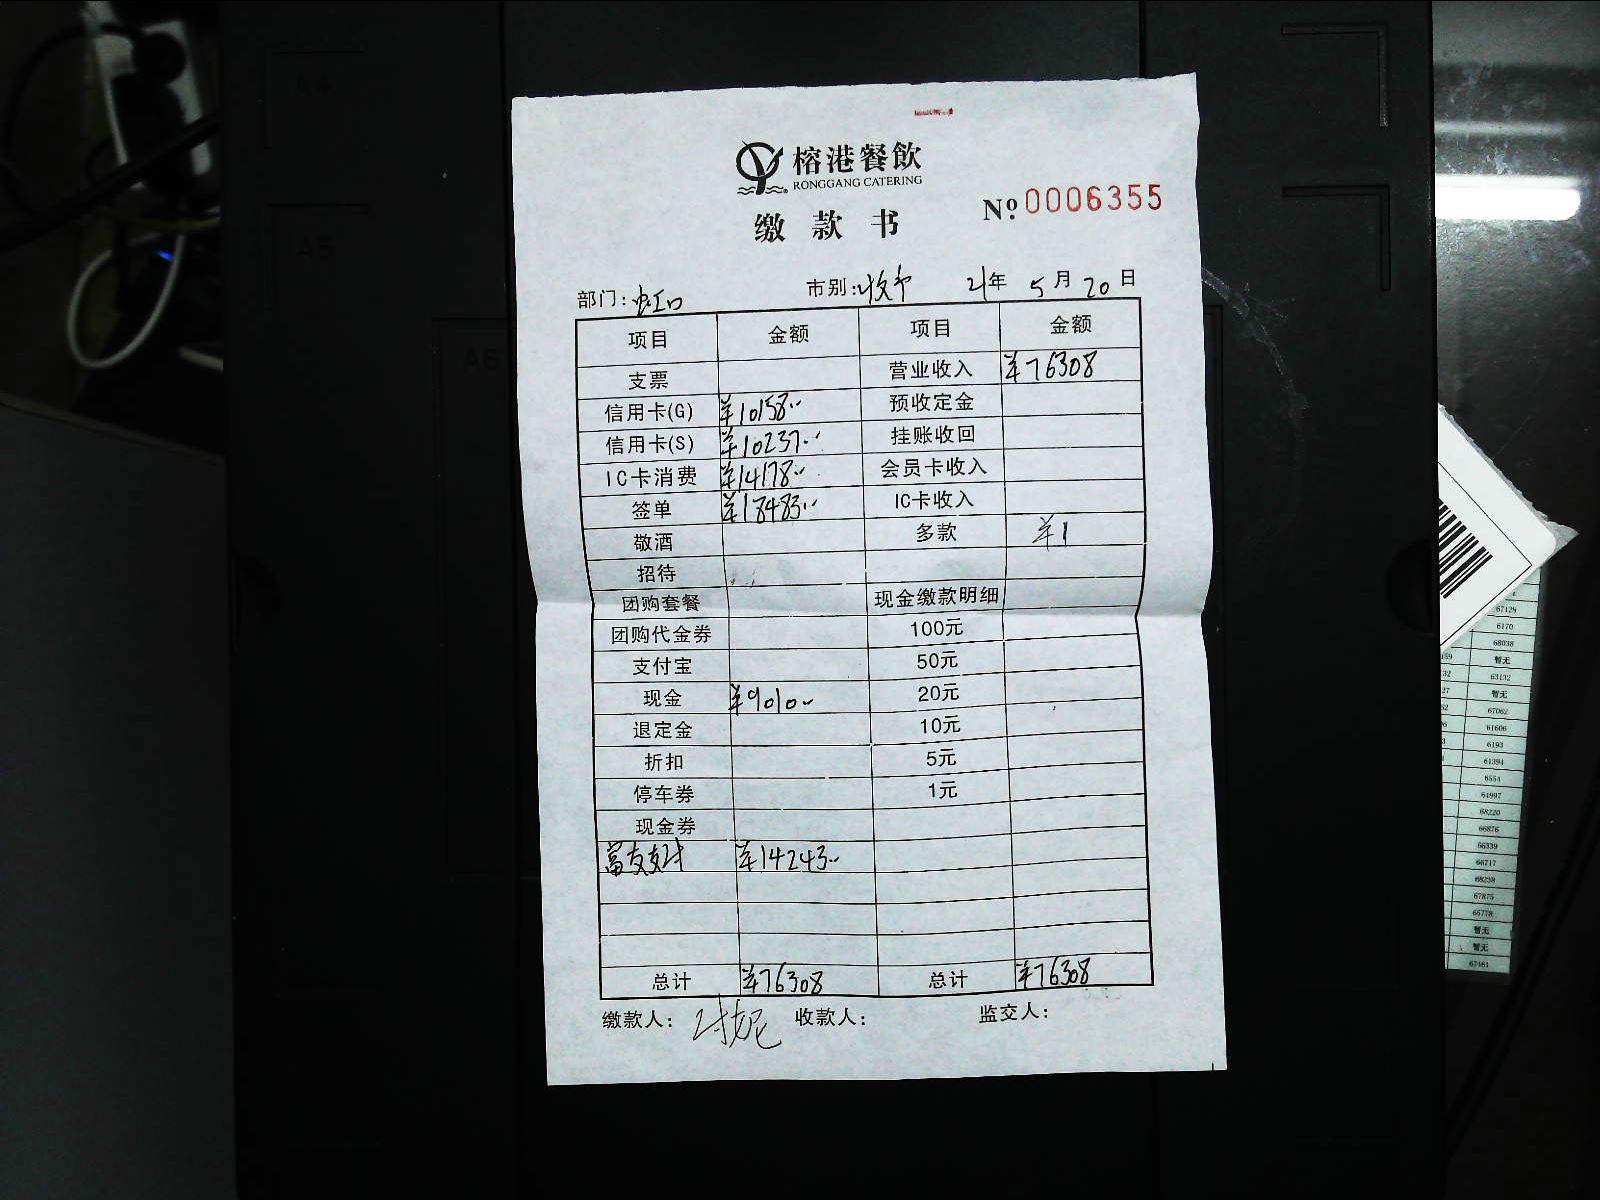 榕港餐飲
RONGGANG CATERING
缴 款 书
№ 0006355
部门: 虹口 市别: 收市 21年 5月20日
项目 金额 项目 金额
支票 营业收入 ¥76308
信用卡(G) ¥10158.. 预收定金
信用卡(S) ¥10237.. 挂账收回
IC卡消费 ¥14178.. 会员卡收入
签单 ¥18483.. IC卡收入
敬酒 多款 ¥1
招待
团购套餐 现金缴款明细
团购代金券 100元
支付宝 50元
现金 ¥9010.. 20元
退定金 10元
折扣 5元
停车券 1元
现金券
富友支付 ¥14243..
总计 ¥76308 总计 ¥76308
缴款人: 收款人: 监交人:
67129
6170
68038
暂无
63132
暂无
67062
61606
6193
61394
6554
64997
68220
66876
66339
66717
68238
67875
65778
暂无
暂无
67461